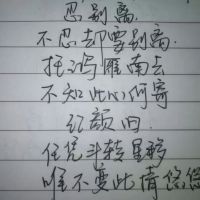 忍别离
不忍却要别离
托鸿雁南去
不知此心何寄
红颜旧
任凭斗转星移
唯不变此情悠悠